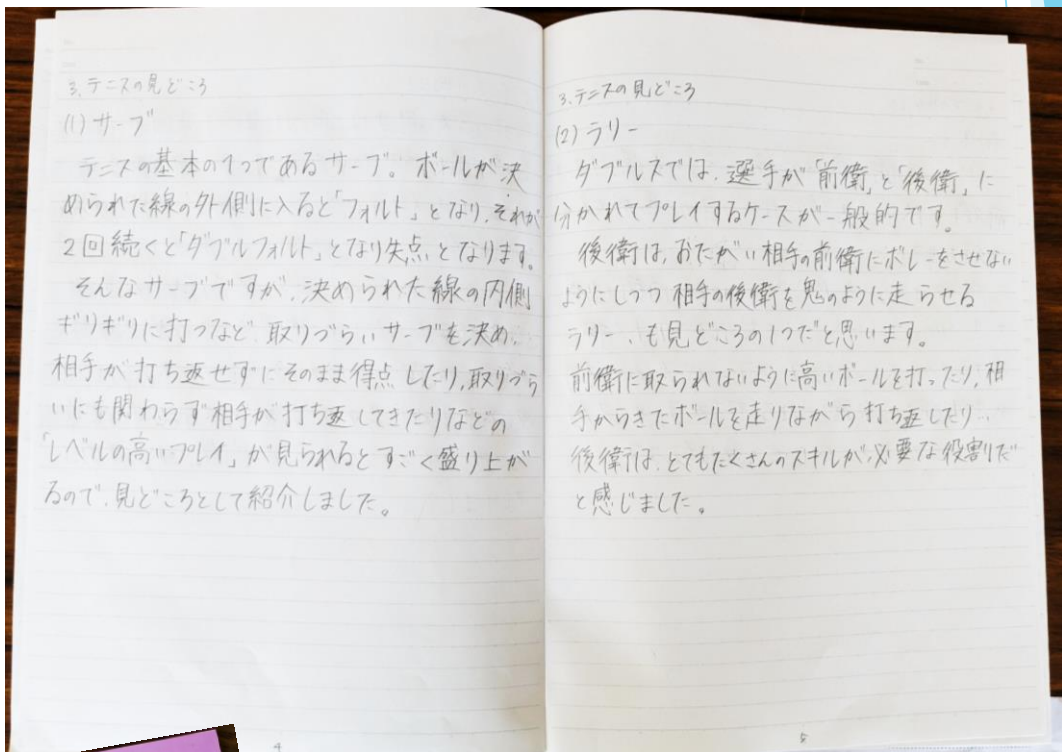 3.テニスの見どころ
(1)サーブ
テニスの基本の1つであるサーブ。ボールが決
められた線の外側に入ると「フォルト」となり、それが
2回続くと「ダブルフォルト」となり失点となります。
そんなサーブですが、決められた線の内側
ギリギリに打つなど、取りづらいサーブを決め、
相手が打ち返せずにそのまま得点したり、取りづら
いにも関わらず相手が打ち返してきたりなどの
「レベルの高いプレイ」が見られるとすごく盛り上が
るので、見どころとして紹介しました。
4
3.テニスの見どころ
(2)ラリー
ダブルスでは、選手が「前衛」と「後衛」に
分かれてプレイするケースが一般的です。
後衛は、おたがい相手の前衛にボレーをさせない
ようにしつつ相手の後衛を鬼のように走らせる
ラリー、も見どころの1つだと思います。
前衛に取られないように高いボールを打ったり、相
手からきたボールを走りながら打ち返したり、
後衛は、とてもたくさんのスキルが必要な役割だ
と感じました。
5